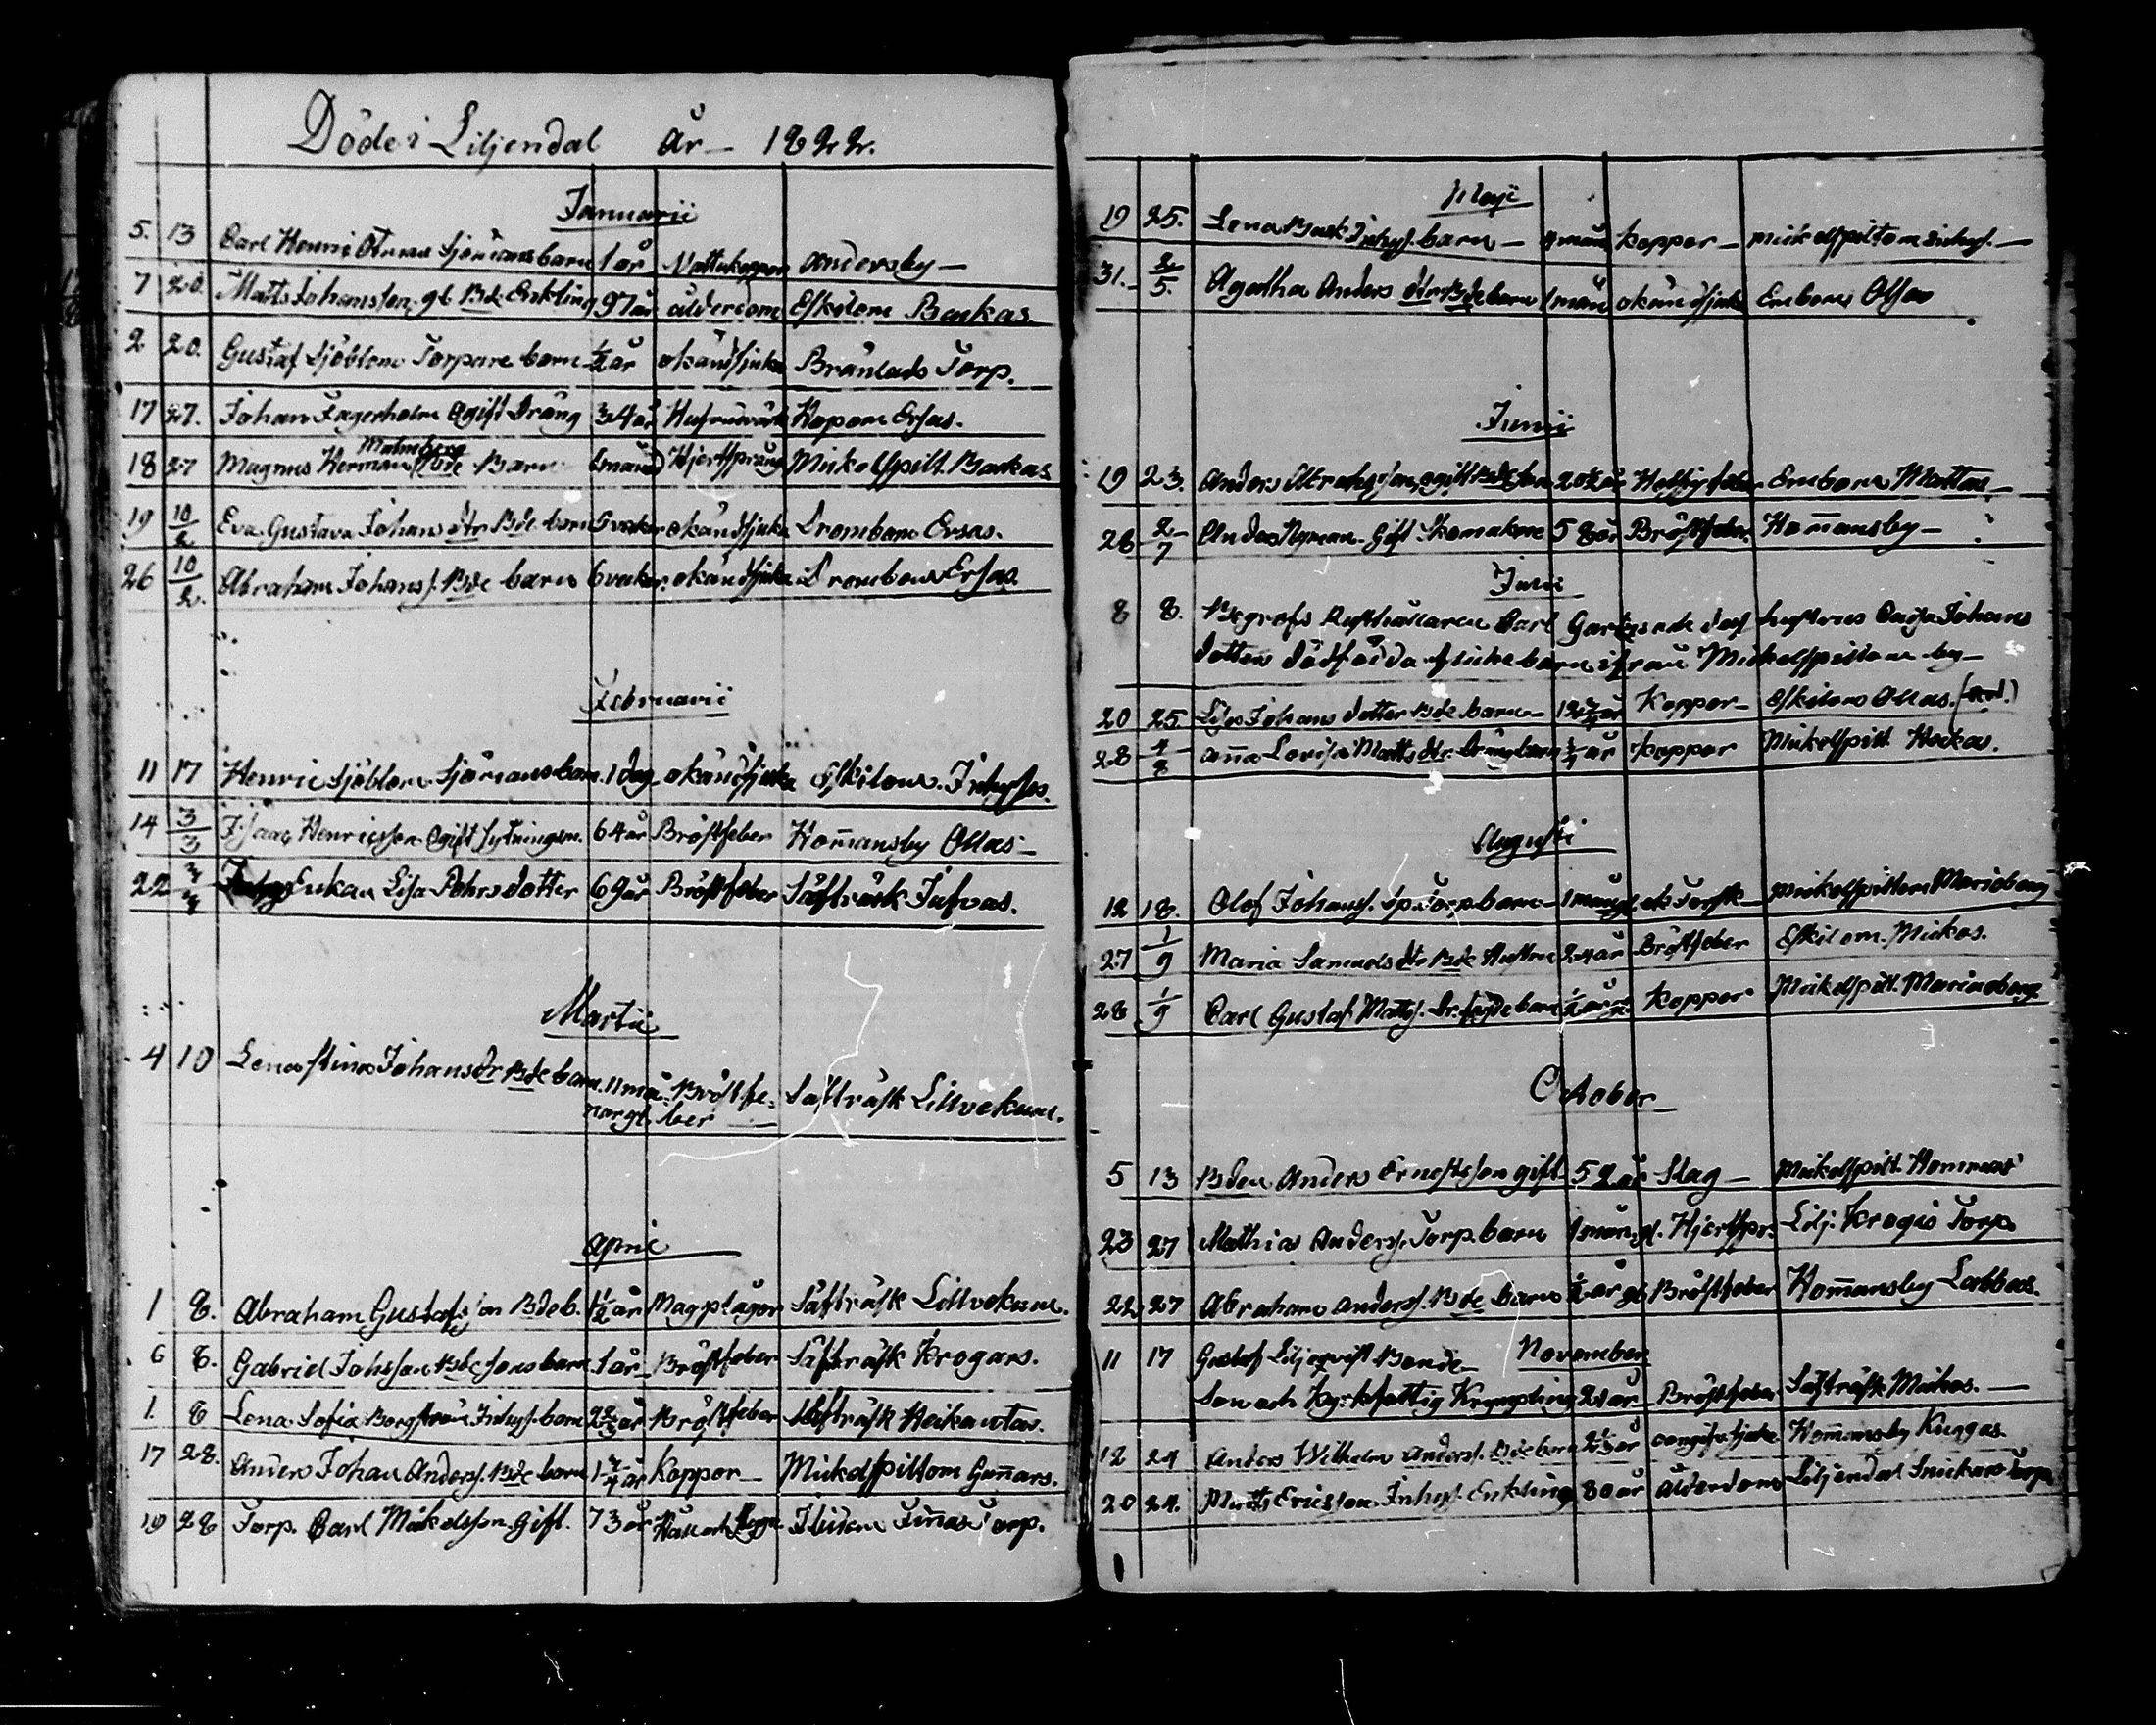 Döde i Liljendal år 1822.
Januarii
5. 13 Carl Henric Sjömans barn 1 år Vattukoppor Andersby
7 20. Matts Johansson gl Bde Enkling 97 år ålderdom Eskilom Backas.
2 20. Gustaf Sjöblom Torpare barn ½ år okänd sjuka Torp.
17 27. Johan Fagerholm Ogift Dräng 34 år Kopom Ersas.
Malmberg
18 27 Magnus Herman Bde Barn 1 månad Hjertsprång Mickelspilt. Backas
19 10/2 Eva Gustava Johans dtr Bde barn 5 veckor okänd sjuka Drombom Ersas.
26 10/2. Abraham Johans s. Bde barn 6 veckor. okänd sjuka Drombom Ersas.
Februarii
11 17 Henric Sjöblom Sjömans barn. 1 dag okänd sjuka Eskilom. Inhyses.
14 3/3 Isaac Henricsson Ogift sytningsm. 64 år Bröstfeber Hom̄ansby Ollas
22 3/3 Enkan Lisa Pehrsdotter 69 år Bröstfeber Säfträsk Jafvas.
Martii
4 10 Lena Stina Johans dr Bde barn. 11 må- Bröstfe- Säfträsk Lillvekum.
nar gl. ber
April
1 8. Abraham Gustafsson Bde b. ½ år Magplågor Säfträsk Lillvekum.
6 8. Gabriel Johsson Bde sons barn 1 år Bröstfeber Säfträsk Krogars.
1. 8 Lena Sofia Borgström Inhys. barn år Bröstfeber Säfträsk Heikantas.
17 28. Anders Johan Anders s. Bde barn 1 ¾ år Koppor Mickelspiltom Gun̄ars.
19 28 Torp. Carl Mickelsson Gift. 73 år Håll och Torp.
Maji
19 25. Lena Inhys. barn 9 mån koppor Mickelspiltom inhys.
31. 2/5. Agatha Anders dtr Bde barn 1 mån okänd sjuka Embom Ollas
Junii
19 23. Anders Abrahsson, ogift Bde son 20½ år Hetsig feber Embom Mattas
28 2/7 Anders Nyman Gift Skomakare 58 år Bröstfeber. Hom̄ansby
Julii
8 8. Begrofs Rusthållaren Carl och des hustrus Caisa Johans
dotters dödfödda flickebarn ifrån Mickelspiltom by
20 25. Lisa Johans dotter Bde barn år Koppor Eskilom Ollas.
28 4/8 An̄a Lovisa Matts dtr. Dräng barn ¾ år koppor Mickelspilt Heikas.
Augusti
12 18. Olof Johans s. Torp. barn 1 mån gl. Torsk Mickelspiltom Marieberg
27 1/9 Maria Samuels dtr Bde Hustru 24 år Bröstfeber Eskilom. Mickos.
28 1/9 Carl Gustaf Matts s. barn ½ år gl. Koppor Mickelspilt. Marieberg
October
5 13 Bden Anders Ernestsson gift 52 år Slag Mickelspilt. Hommas
23 27 Mathias Anders s. Torp. barn 1 mån. gl. Hjertspr. Lilj. Krogis Torp.
22 27 Abraham Anders s. Bde barn ½ år gl Bröstfeber Hom̄ansby Labbas.
November
11 17 Gustaf Liljeqvist Bonde
Son och Kyrkfattig Krympling 21 år Bröstfeber Säfträsk Mickos.
12 24 Anders Wilhelm Anders s. Bde barn år oangifv. sjuka Hom̄ansby Kuggas.
20 24. Matts Ericsson. Inhys. Enkling 80 år Ålderdom Liljendal Snickars Torp